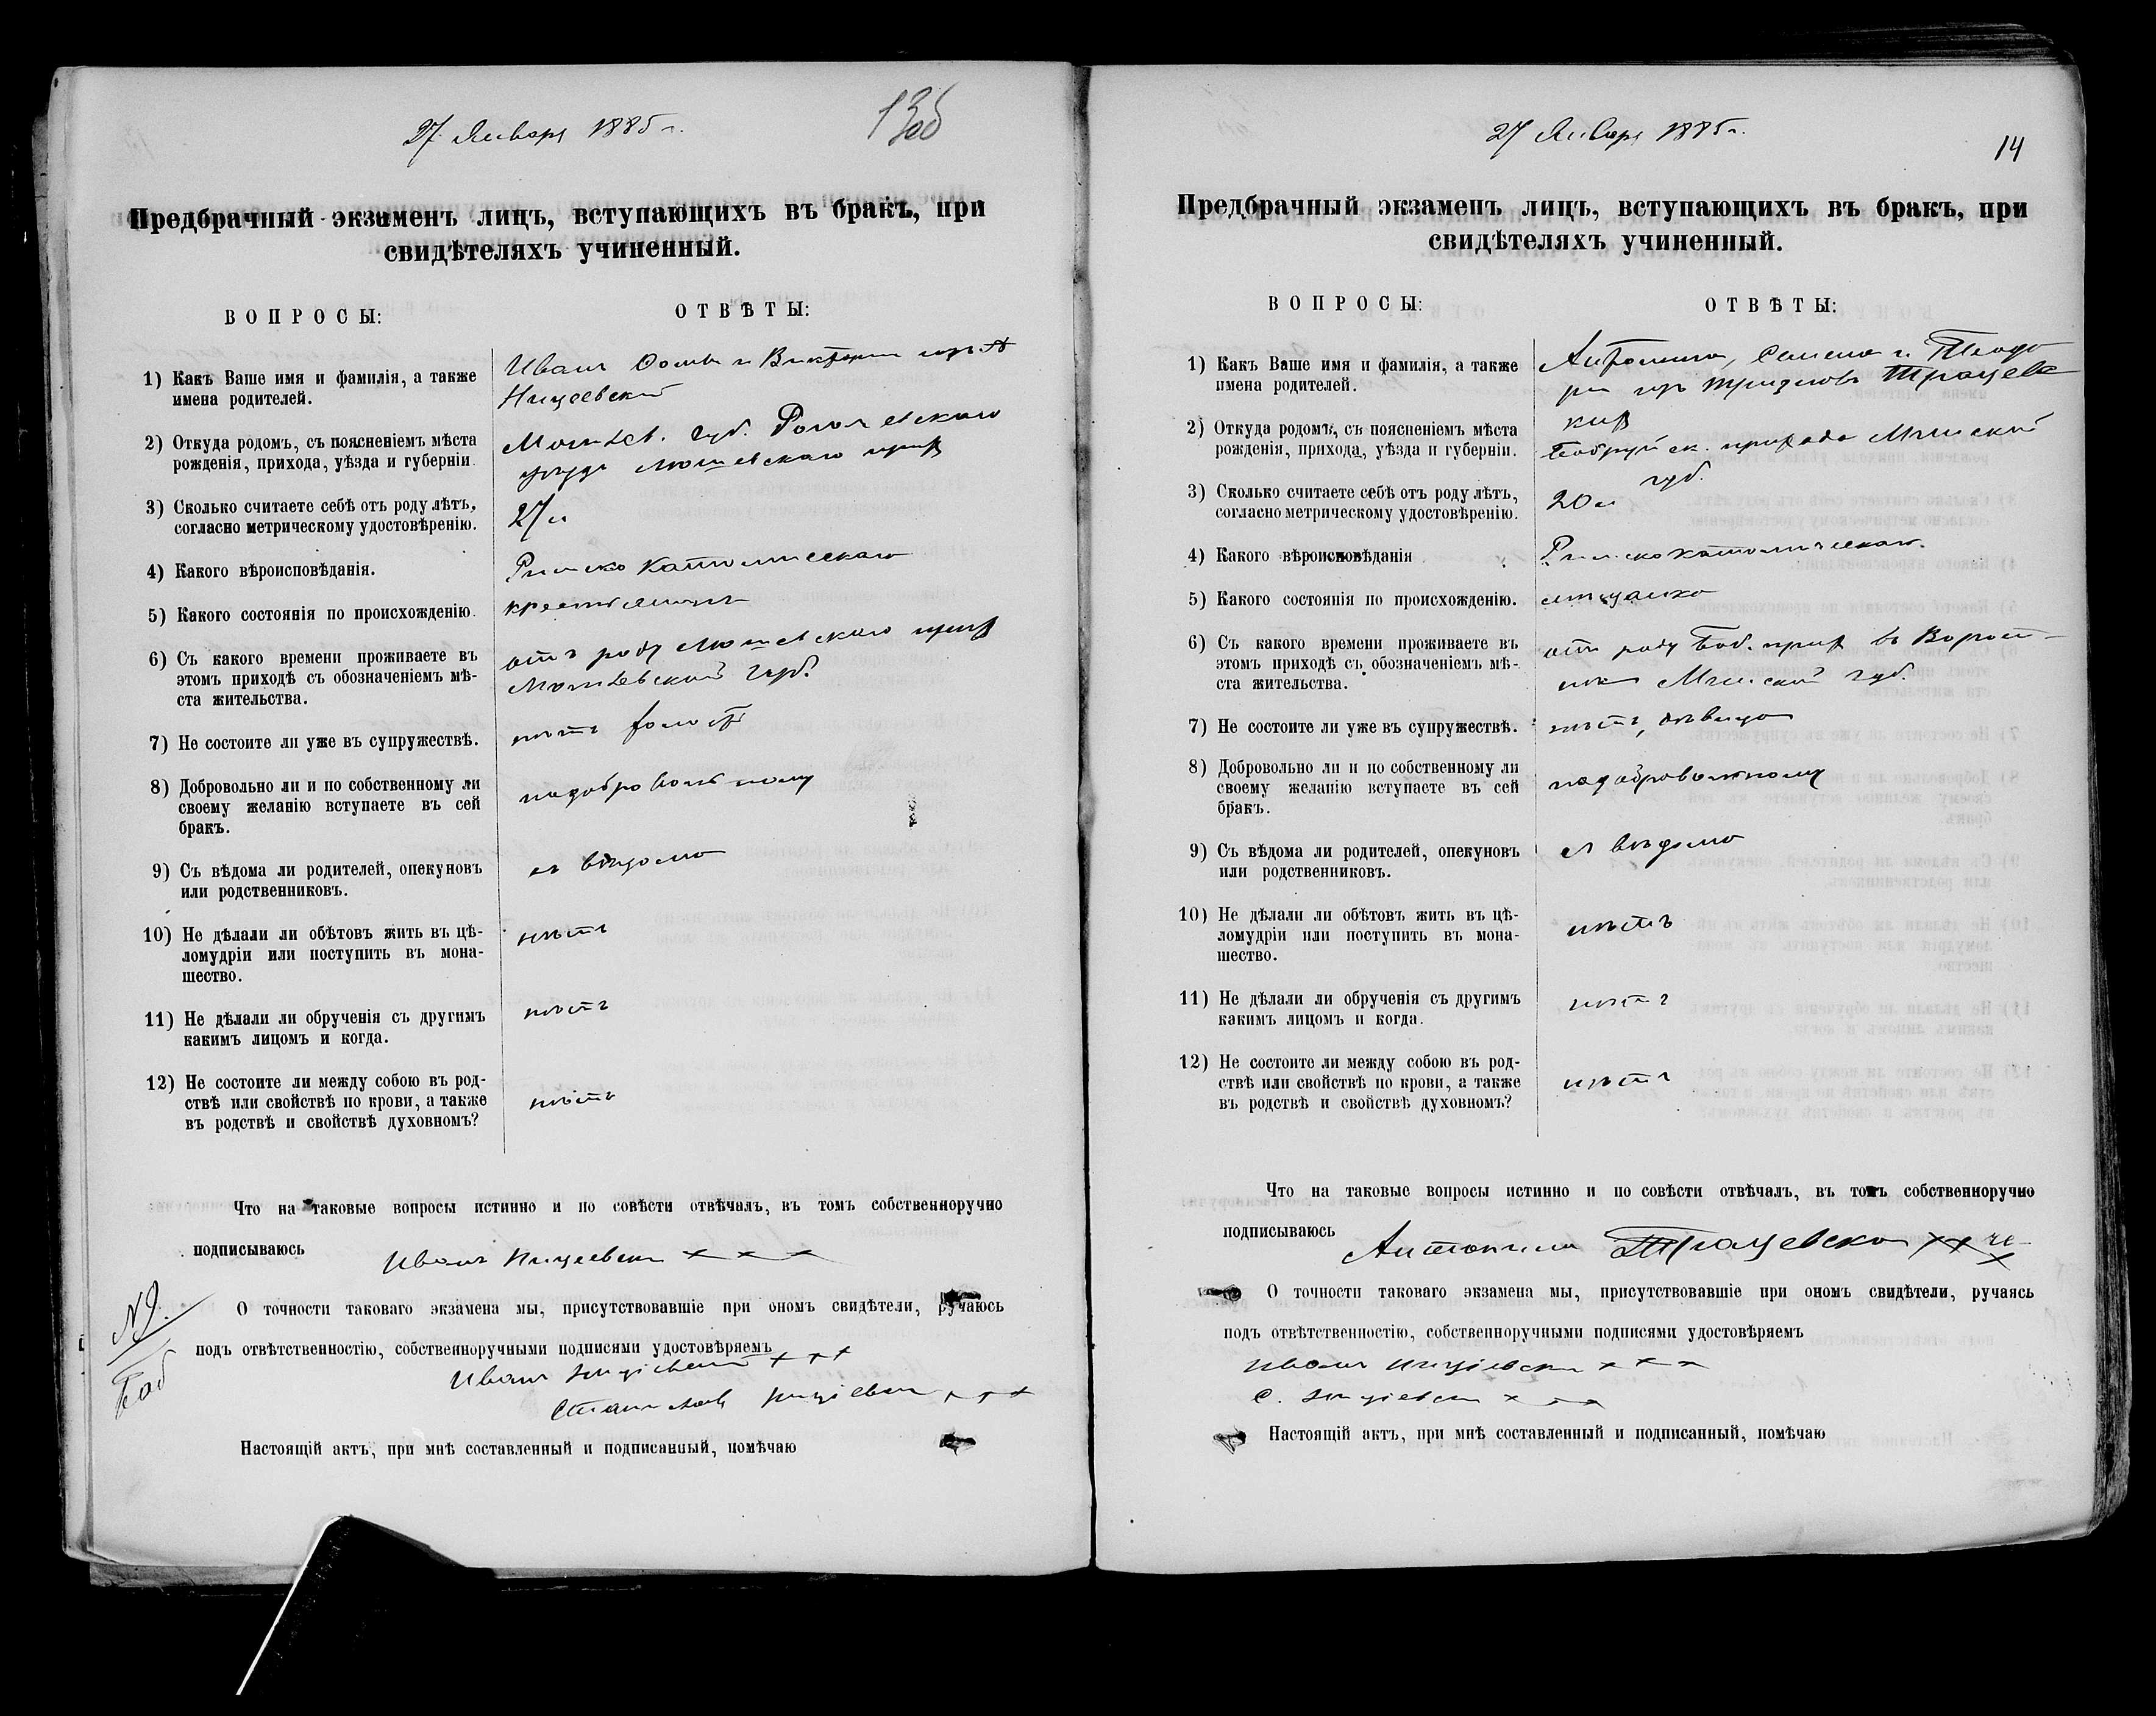 27 Января 1885 г.
13 об
Предбрачный экзаменъ лицъ, вступающихъ въ бракъ, при
свидѣтеляхъ учиненный.
ВОПРОСЫ:
ОТВѢТЫ:
1) Какъ Ваше имя и фамилія, а также
имена родителей.
Иванъ Ѳомы и Викторіи
Ницеевскій
2) Откуда родомъ, съ поясненіемъ мѣста
рожденія, прихода, уѣзда и губерніи.
Могилев. губ. Рогачевскаго
3) Сколько считаете себѣ отъ роду лѣтъ,
согласно метрическому удостовѣренію.
27 л
4) Какого вѣроисповѣданія.
Римско Католическаго
5) Какого состоянія по происхожденію.
крестьянинъ
6) Съ какого времени проживаете въ
этомъ приходѣ съ обозначеніемъ мѣ-
ста жительства.
отъ роду
Могилевской губ.
7) Не состоите ли уже въ супружествѣ.
нѣтъ холостъ
8) Добровольно ли и по собственному ли
своему желанію вступаете въ сей
бракъ.
подобровольному
9) Съ вѣдома ли родителей, опекуновъ
или родственниковъ.
съ вѣдома
10) Не дѣлали ли обѣтовъ жить въ цѣ-
ломудріи или поступить въ мона-
шество.
нѣтъ
11) Не дѣлали ли обрученія съ другимъ
какимъ лицомъ и когда.
нѣтъ
12) Не состоите ли между собою въ род-
ствѣ или свойствѣ по крови, а также
въ родствѣ и свойствѣ духовномъ?
нѣтъ
Что на таковые вопросы истинно и по совѣсти отвѣчалъ, въ томъ собственноручно
подписываюсь
Иванъ Ницеевскій x x x
О точности таковаго экзамена мы, присутствовавшіе при ономъ свидѣтели, ручаюсь
подъ отвѣтственностію, собственноручными подписями удостовѣряемъ
Иванъ Ницеевскій x x x
Станиславъ Ницеевскій x x x
Боб
Настоящій актъ, при мнѣ составленный и подписанный, помѣчаю
27 Января 1885 г.
14
Предбрачный экзаменъ лицъ, вступающихъ въ бракъ, при
свидѣтеляхъ учиненный.
ВОПРОСЫ:
ОТВѢТЫ:
1) Какъ Ваше имя и фамилія, а также
имена родителей.
Антонина, Семена и Теодо
ры
2) Откуда родомъ, съ поясненіемъ мѣста
рожденія, прихода, уѣзда и губерніи.
Бобруйск. прихода Минской
губ.
3) Сколько считаете себѣ отъ роду лѣтъ,
согласно метрическому удостовѣренію.
20 л
4) Какого вѣроисповѣданія
Римскокатолическаго.
5) Какого состоянія по происхожденію.
мѣщанка
6) Съ какого времени проживаете въ
этомъ приходѣ съ обозначеніемъ мѣ-
ста жительства.
отъ роду Боб. прих въ
Минской губ.
7) Не состоите ли уже въ супружествѣ.
нѣтъ, дѣвица
8) Добровольно ли и по собственному ли
своему желанію вступаете въ сей
бракъ.
подобровольному
9) Съ вѣдома ли родителей, опекуновъ
или родственниковъ.
съ вѣдома
10) Не дѣлали ли обѣтовъ жить въ цѣ-
ломудріи или поступить въ мона-
шество.
нѣтъ
11) Не дѣлали ли обрученія съ другимъ
какимъ лицомъ и когда.
нѣтъ
12) Не состоите ли между собою въ род-
ствѣ или свойствѣ по крови, а также
въ родствѣ и свойствѣ духовномъ?
нѣтъ
Что на таковые вопросы истинно и по совѣсти отвѣчалъ, въ томъ собственноручно
подписываюсь
Антонина Трацевска x x x
О точности таковаго экзамена мы, присутствовавшіе при ономъ свидѣтели, ручаясь
подъ отвѣтственностію, собственноручными подписями удостовѣряемъ
Иванъ Ницеевскій x x x
С. Ницеевскій x x x
Настоящій актъ, при мнѣ составленный и подписанный, помѣчаю